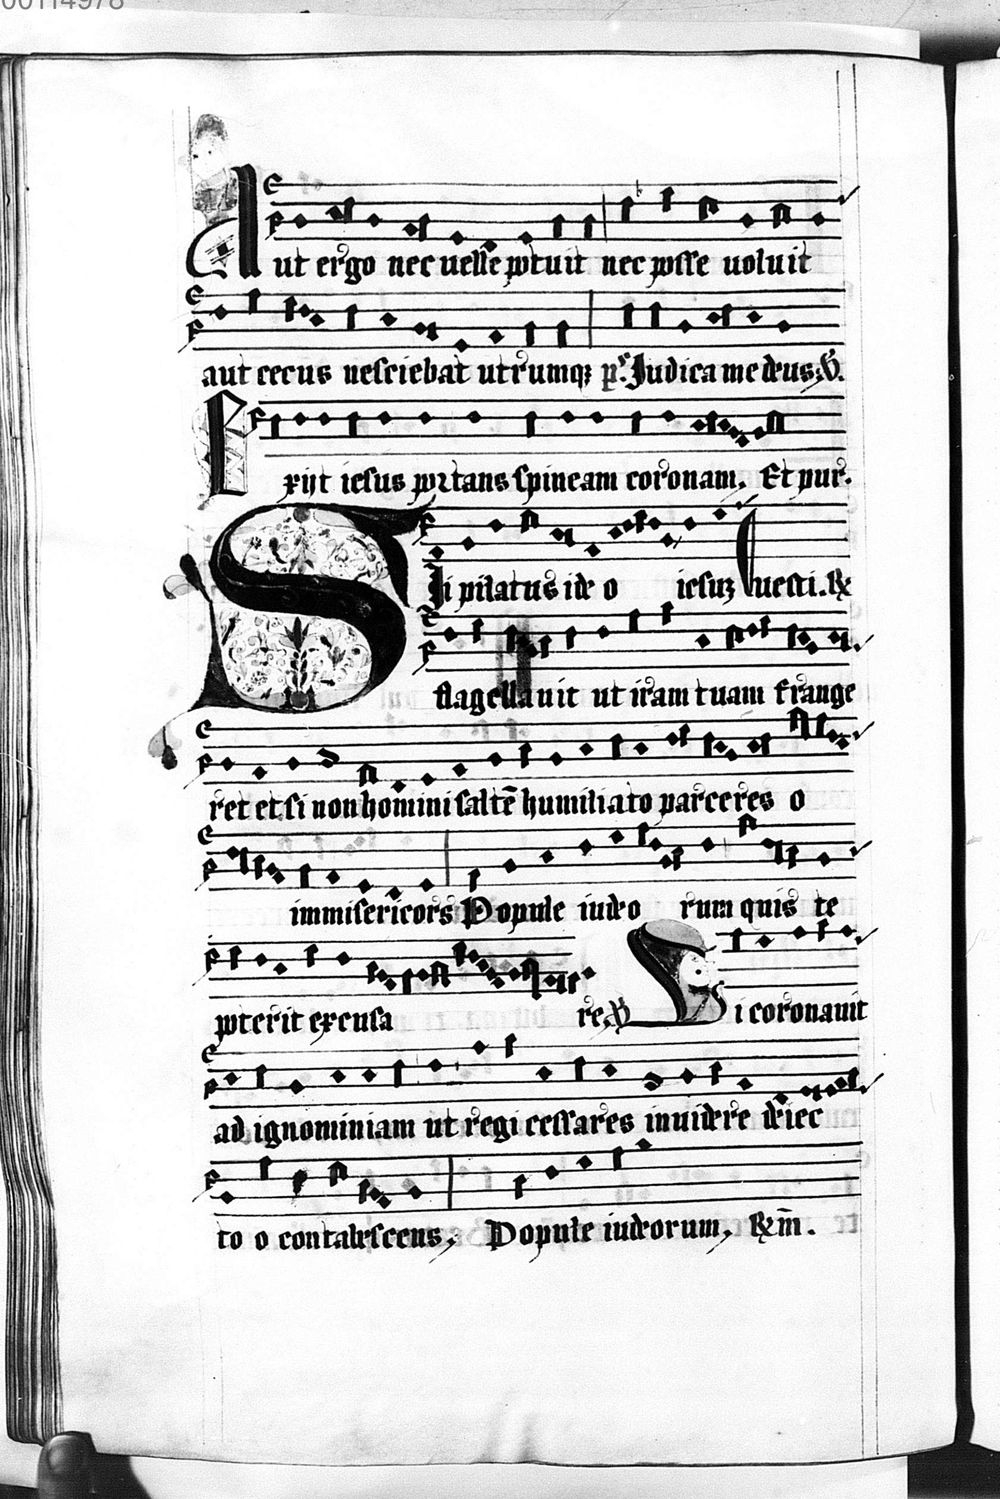 00114978
Aut ergo nec uelle potuit nec posse uoluit
aut cecus nesciebat utrumqꝫ p̱ˢ. Judica me deus. v̄.
Exijt iesus portans spineam coronam. Et pur.
Si pilatus ide o iesuꝫ uesti. &
flagellauit ut iram tuam frange
ret et si non homini saltē humiliato parceres o
immisericors Popule iudeo rum quis te
poterit excusa re. ℣ Si coronauit
ad ignominiam ut regi cessares inuidere deiec
to o contabescens. Popule iudeorum. &m̄.